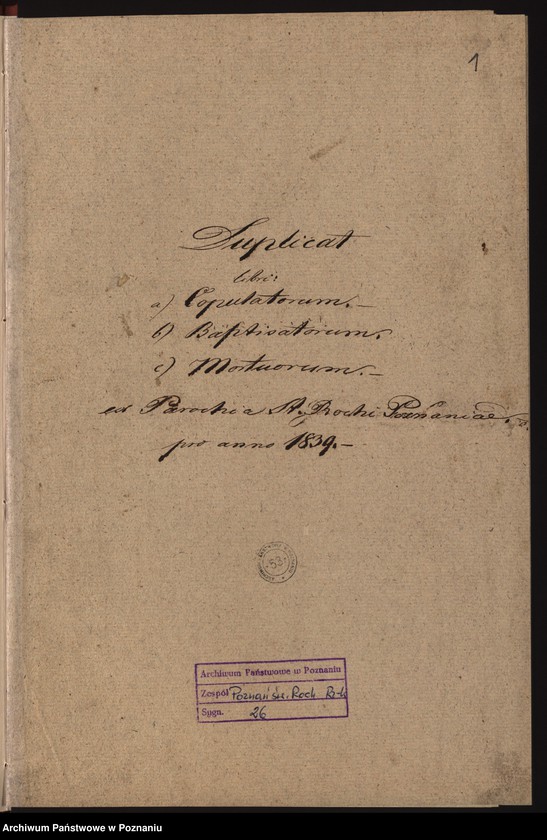 1
Duplicat
libri:
a) Copulatorum.—
b) Baptisatorum.
c) Mortuorum.—
ex Parochia St. Rochi Posnaniae.
pro anno 1839.—
53
Archiwum Państwowe w Poznaniu
Zespół Poznań św. Roch Rz-k
Sygn. 26
Archiwum Państwowe w Poznaniu